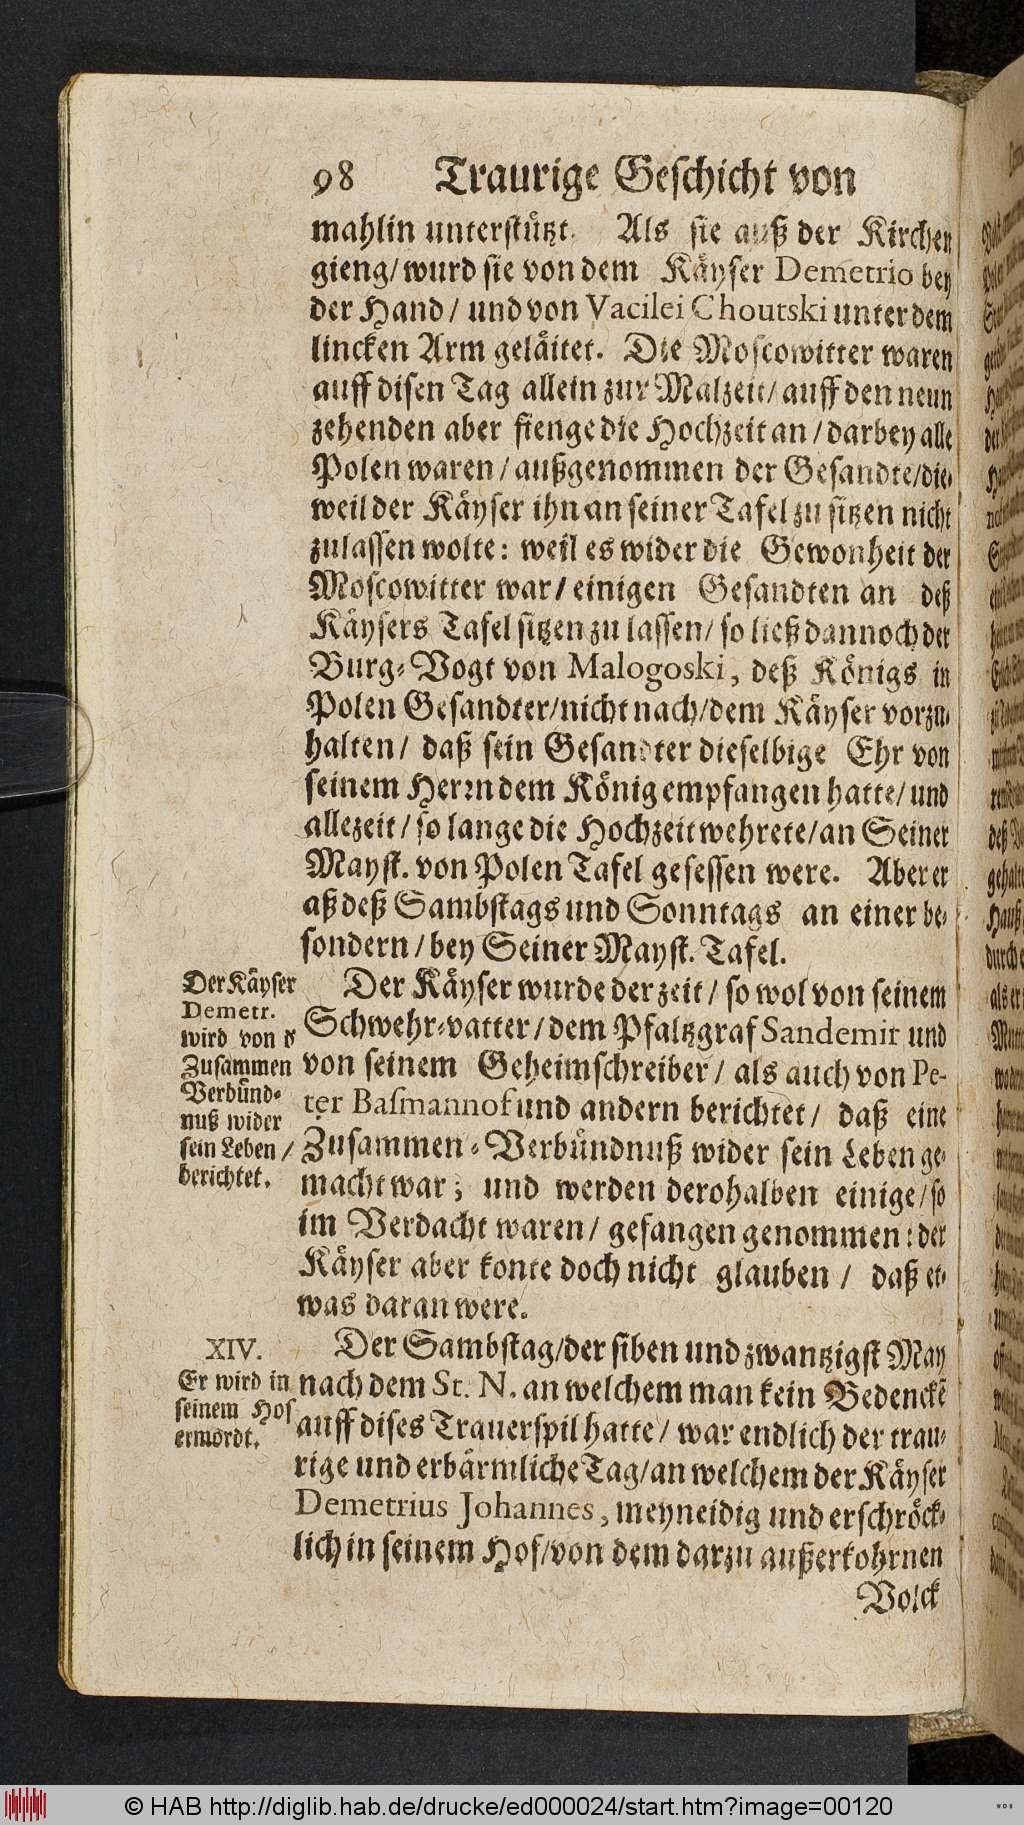 98 Traurige Geschicht von
mahlin unterstützt. Als sie auß der Kirchen
gieng/ wurd sie von dem Käyser Demetrio bey
der Hand/ und von Vacilei Choutski unter dem
lincken Arm geläitet. Die Moscowitter waren
auff disen Tag allein zur Malzeit/ auff den neun
zehenden aber fienge die Hochzeit an/ darbey alle
Polen waren/ außgenommen der Gesandte/ die-
weil der Käyser ihn an seiner Tafel zu sitzen nicht
zulassen wolte: weil es wider die Gewonheit der
Moscowitter war/ einigen Gesandten an deß
Käysers Tafel sitzen zu lassen/ so ließ dannoch der
Burg-Vogt von Malogoski, deß Königs in
Polen Gesandter/ nicht nach/ dem Käyser vorzu-
halten/ daß sein Gesandter dieselbige Ehr von
seinem Herrn dem König empfangen hatte/ und
allezeit/ so lange die Hochzeit wehrete/ an Seiner
Mayst. von Polen Tafel gesessen were. Aber er
aß deß Sambstags und Sonntags an einer be-
sondern/ bey Seiner Mayst. Tafel.
Der Käyser
Demetr.
wird von d
Zusammen
Verbünd-
nuß wider
sein Leben/
berichtet.
Der Käyser wurde der zeit/ so wol von seinem
Schwehr-vatter/ dem Pfaltzgraf Sandemir und
von seinem Geheimschreiber/ als auch von Pe-
ter Basmannof und andern berichtet/ daß eine
Zusammen-Verbündnuß wider sein Leben ge-
macht war; und werden derohalben einige/ so
im Verdacht waren/ gefangen genommen: der
Käyser aber konte doch nicht glauben/ daß et-
was daran were.
XIV.
Er wird in
seinem Hof
ermordt.
Der Sambstag/ der siben und zwantzigst May
nach dem St. N. an welchem man kein Bedenckē
auff dises Trauerspil hatte/ war endlich der trau-
rige und erbärmliche Tag/ an welchem der Käyser
Demetrius Johannes, meyneidig und erschröck-
lich in seinem Hof/ von dem darzu außerkohrnen
Volck
© HAB http://diglib.hab.de/drucke/ed000024/start.htm?image=00120